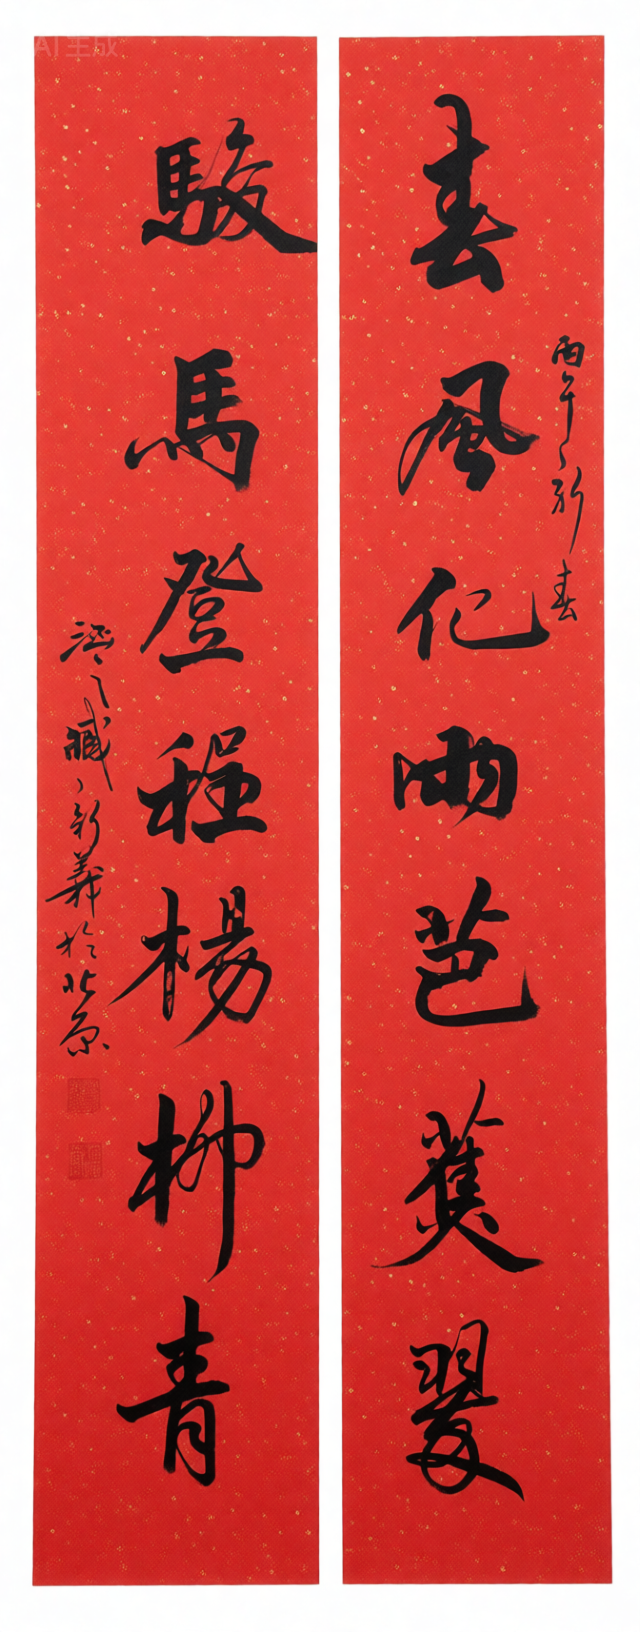 春風化雨芭蕉翠
丙午新春
駿馬登程楊柳青
新義於北京
AI 生成